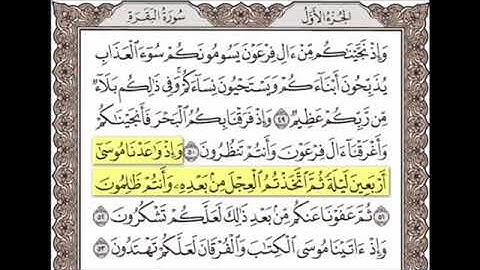 الجزء الأول
سورة البقرة
وَإِذْ نَجَّيْنَٰكُم مِّنْ ءَالِ فِرْعَوْنَ يَسُومُونَكُمْ سُوٓءَ ٱلْعَذَابِ
يُذَبِّحُونَ أَبْنَآءَكُمْ وَيَسْتَحْيُونَ نِسَآءَكُمْ ۚ وَفِى ذَٰلِكُم بَلَآءٌ
مِّن رَّبِّكُمْ عَظِيمٌ ٤٩ وَإِذْ فَرَقْنَا بِكُمُ ٱلْبَحْرَ فَأَنجَيْنَٰكُمْ
وَأَغْرَقْنَآ ءَالَ فِرْعَوْنَ وَأَنتُمْ تَنظُرُونَ ٥٠ وَإِذْ وَٰعَدْنَا مُوسَىٰٓ
أَرْبَعِينَ لَيْلَةً ثُمَّ ٱتَّخَذْتُمُ ٱلْعِجْلَ مِنۢ بَعْدِهِۦ وَأَنتُمْ ظَٰلِمُونَ
٥١ ثُمَّ عَفَوْنَا عَنكُم مِّنۢ بَعْدِ ذَٰلِكَ لَعَلَّكُمْ تَشْكُرُونَ ٥٢
وَإِذْ ءَاتَيْنَا مُوسَى ٱلْكِتَٰبَ وَٱلْفُرْقَانَ لَعَلَّكُمْ تَهْتَدُونَ ٥٣